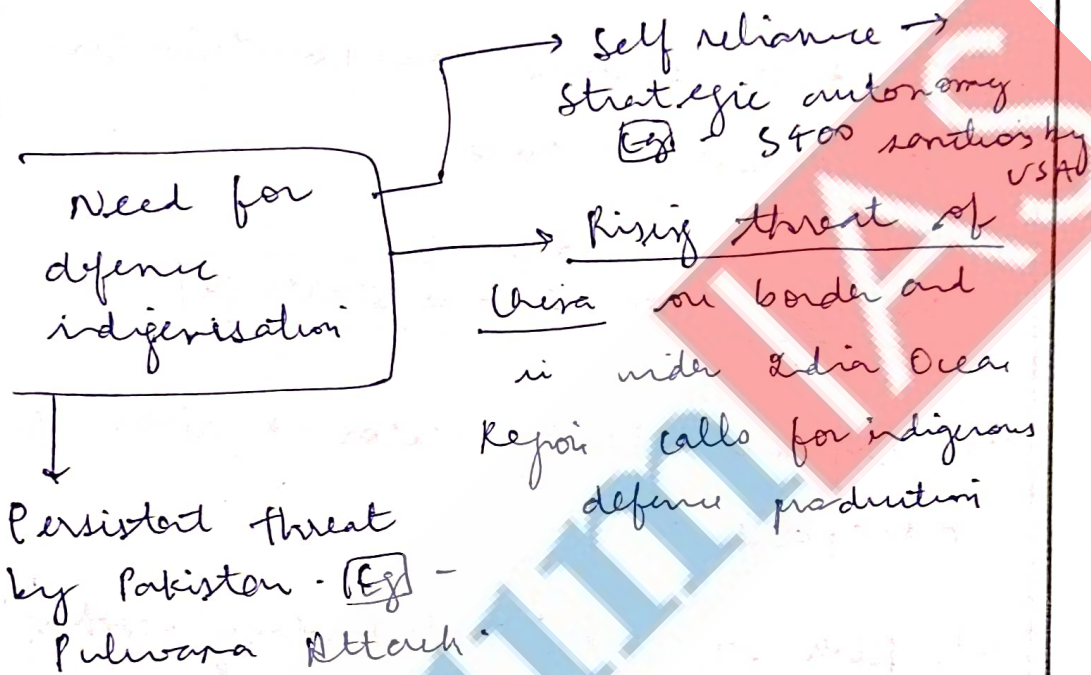 Need for
defence
indigenisation
→ Self reliance →
Strategic autonomy
Eg - S400 sanctions by
USA
→ Rising threat of
China on border and
in wider India Ocean
Region calls for indigenous
defence production
Persistent threat
by Pakistan. Eg -
Pulwama Attack.
IAS
um